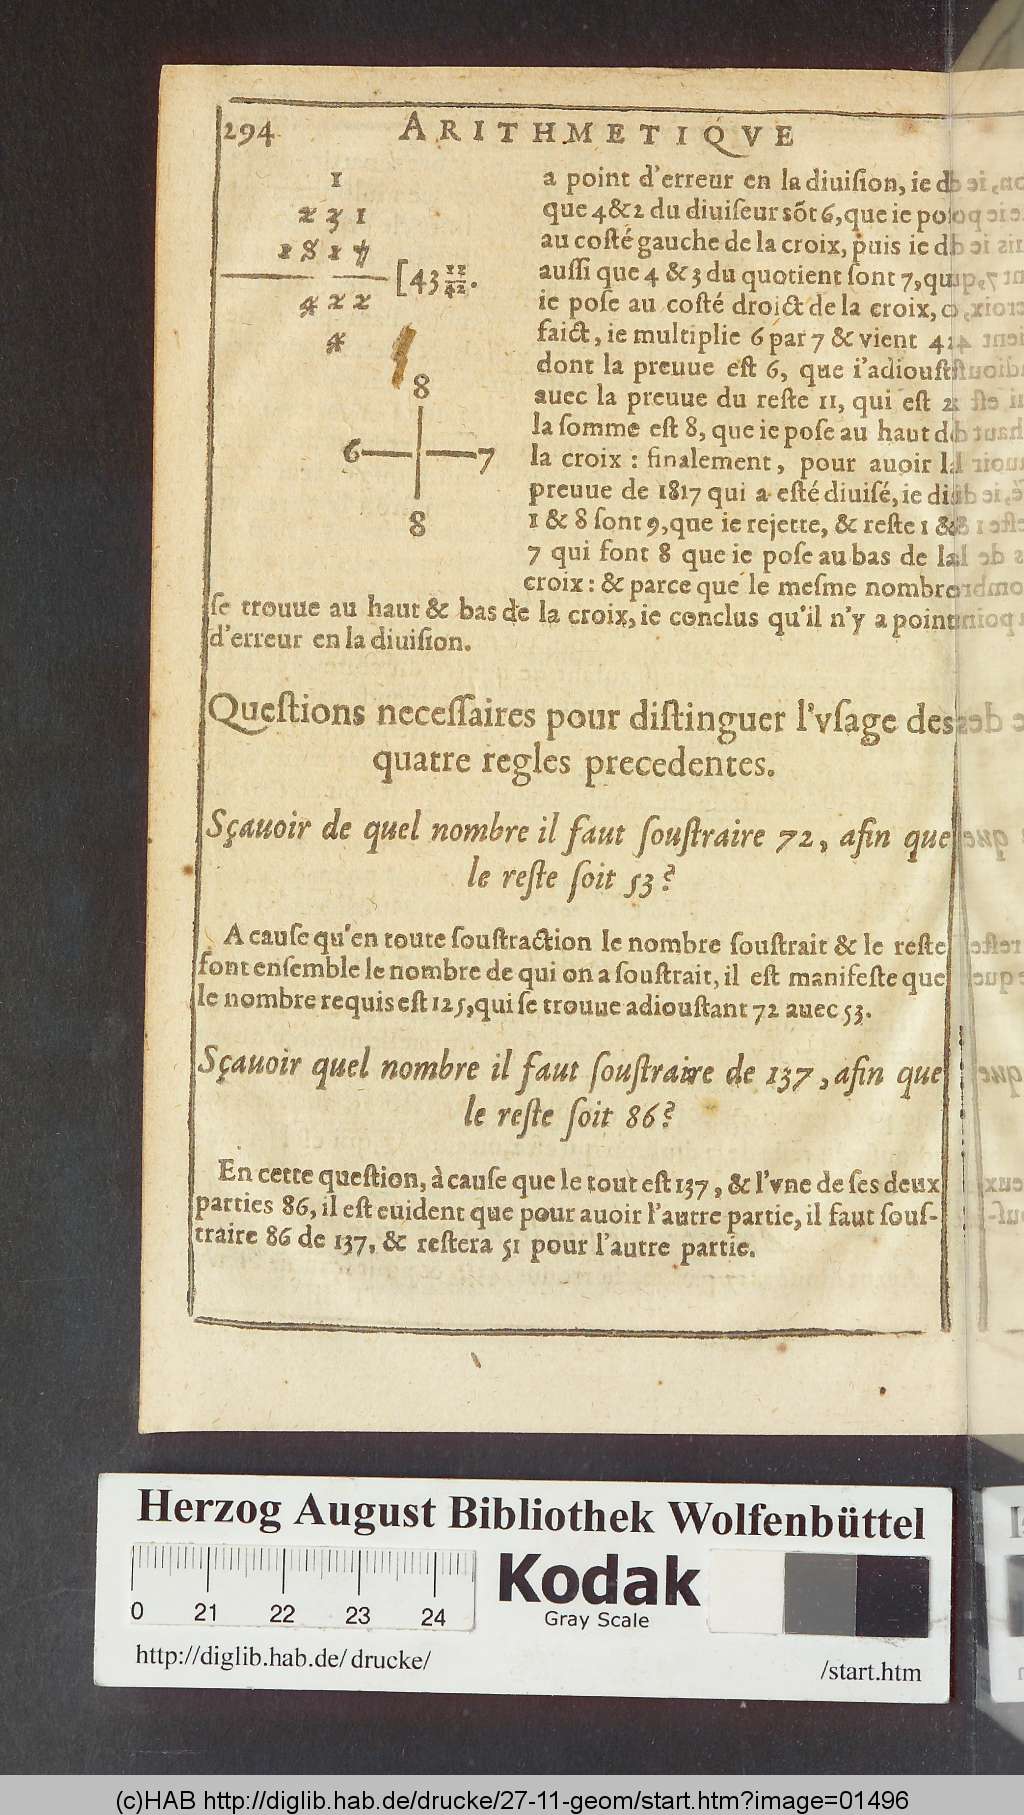 294 ARITHMETIQVE
1
2 3 1
1 8 1 7
[43 11/42.
4 2 2
4
8
6 7
8
a point d'erreur en la diuiſion, ie d
que 4 & 2 du diuiſeur sõt 6, que ie poſ
au coſté gauche de la croix, puis ie d
auſſi que 4 & 3 du quotient ſont 7, qu
ie poſe au coſté droict de la croix,
faict, ie multiplie 6 par 7 & vient 42
dont la preuue eſt 6, que i'adiouſt
auec la preuue du reſte 11, qui eſt 2
la ſomme eſt 8, que ie poſe au haut d
la croix : finalement, pour auoir la
preuue de 1817 qui a eſté diuiſé, ie di
1 & 8 ſont 9, que ie rejette, & reſte 1 &
7 qui font 8 que ie poſe au bas de la
croix : & parce que le meſme nombre
ſe trouue au haut & bas de la croix, ie conclus qu'il n'y a point
d'erreur en la diuiſion.
Queſtions neceſſaires pour diſtinguer l'vſage des
quatre regles precedentes.
Sçauoir de quel nombre il faut ſouſtraire 72, afin que
le reſte ſoit 53?
A cauſe qu'en toute ſouſtraction le nombre ſouſtrait & le reſte
font enſemble le nombre de qui on a ſouſtrait, il eſt manifeſte que
le nombre requis eſt 125, qui ſe trouue adiouſtant 72 auec 53.
Sçauoir quel nombre il faut ſouſtraire de 137, afin que
le reſte ſoit 86?
En cette queſtion, à cauſe que le tout eſt 137, & l'vne de ſes deux
parties 86, il eſt euident que pour auoir l'autre partie, il faut ſouſ-
traire 86 de 137, & reſtera 51 pour l'autre partie.
Herzog August Bibliothek Wolfenbüttel
0 21 22 23 24
Kodak
Gray Scale
http://diglib.hab.de/drucke/
/start.htm
(c)HAB http://diglib.hab.de/drucke/27-11-geom/start.htm?image=01496